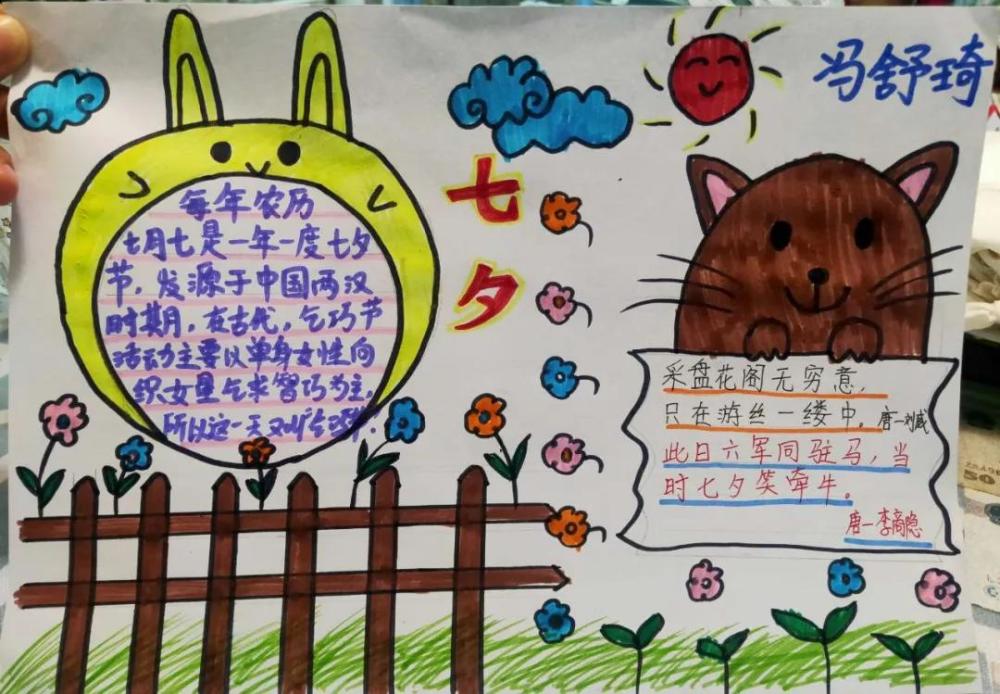 冯舒琦
七夕
每年农历
七月七是一年一度七夕
节,发源于中国两汉
时期月,在古代,乞巧节
活动主要以单身女性向
织女星乞求智巧为主,
所以这一天又叫乞巧节.
采盘花阁无穷意,
只在游丝一缕中。唐一刘威
此日六军同驻马,当
时七夕笑牵牛。
唐一李商隐
50